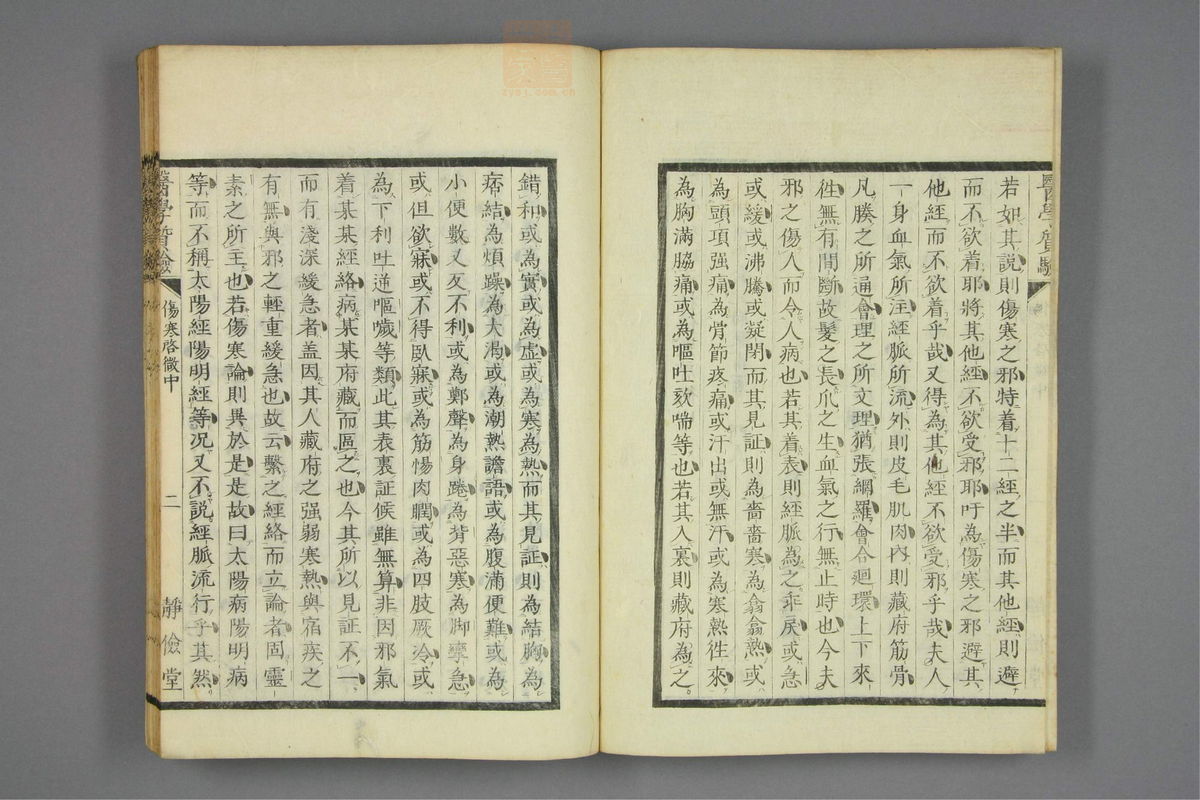 醫學質驗
若如其說則傷寒之邪特着十二經之半而其他經則避
而不欲着耶將其他經不欲受邪耶吁為傷寒之邪避其
他經而不欲着乎哉又得為其他經不欲受邪乎哉夫人
一身血氣所注經脈所流外則皮毛肌肉內則藏府筋骨
凡腠之所通會理之所文理猶張網羅會合廻環上下來
徃無有間斷故髮之長爪之生血氣之行無止時也今夫
邪之傷人而令人病也若其着表則經脈為之乖戾或急
或緩或沸騰或凝閉而其見証則為嗇嗇寒為翕翕熱或
為頭項强痛為骨節疼痛或汗出或無汗或為寒熱徃來
為胸滿脇痛或為嘔吐欬喘等也若其入裏則藏府為之
錯和或為實或為虛或為寒為熱而其見証則為結胸為
痞結為煩躁為大渴或為潮熱譫語或為腹滿便難或為
小便數又及不利或為鄭聲為身踡為背惡寒為脚攣急
或但欲寐或不得臥寐或為筋惕肉瞤或為四肢厥冷或
為下利吐逆嘔噦等類此其表裏証候雖無算非因邪氣
着某某經絡病某某府藏而區之也今其所以見証不一
而有淺深緩急者盖因其人藏府之强弱寒熱與宿疾之
有無與邪之輕重緩急也故云繫之經絡而立論者固靈
素之所主也若傷寒論則異於是是故曰太陽病陽明病
等而不稱太陽經陽明經等况又不說經脈流行乎其然
醫學質驗 傷寒啓微中 二 靜儉堂
zysj.com.cn